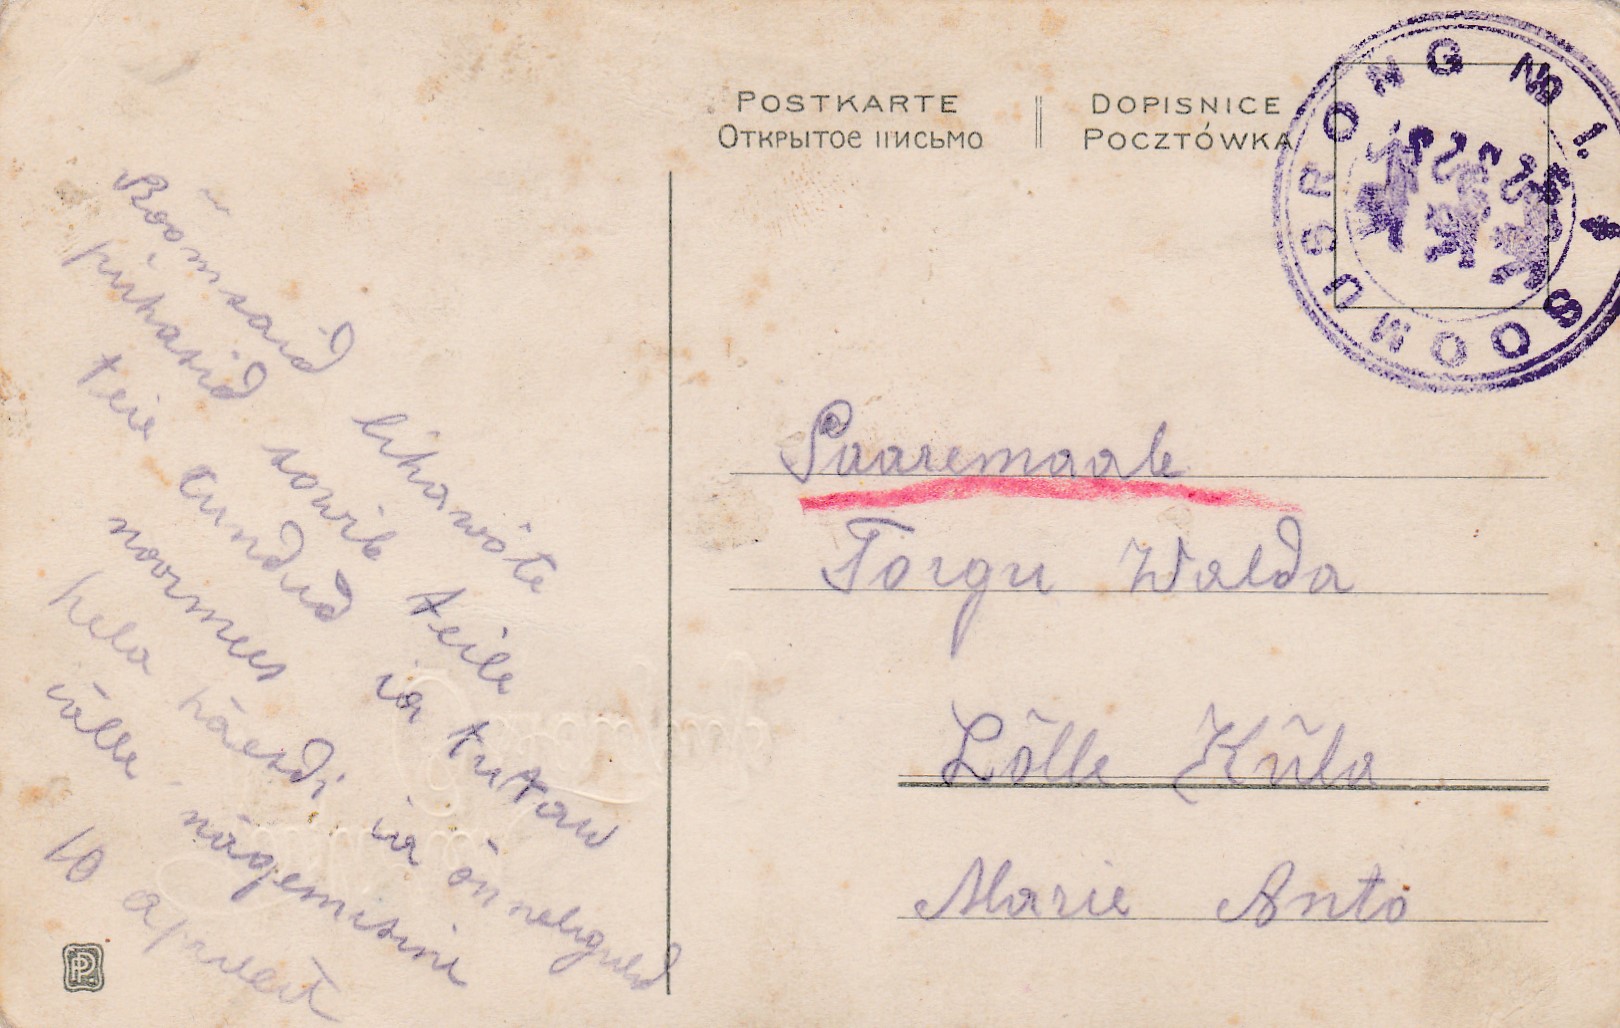 POSTKARTE
Открытое письмо
DOPISNICE
POCZTÓWKA
SOOMUSRONG NR 1.
Rõõmsaid lihawõte
pühasid sowib teile
teie tundud ja tutaw
noormees
hela käesdi ja õnneligud
jälle nägemisini
10 aprilest
Saaremaale
Torgu Walda
Lõlle Küla
Marie Anto
PP.